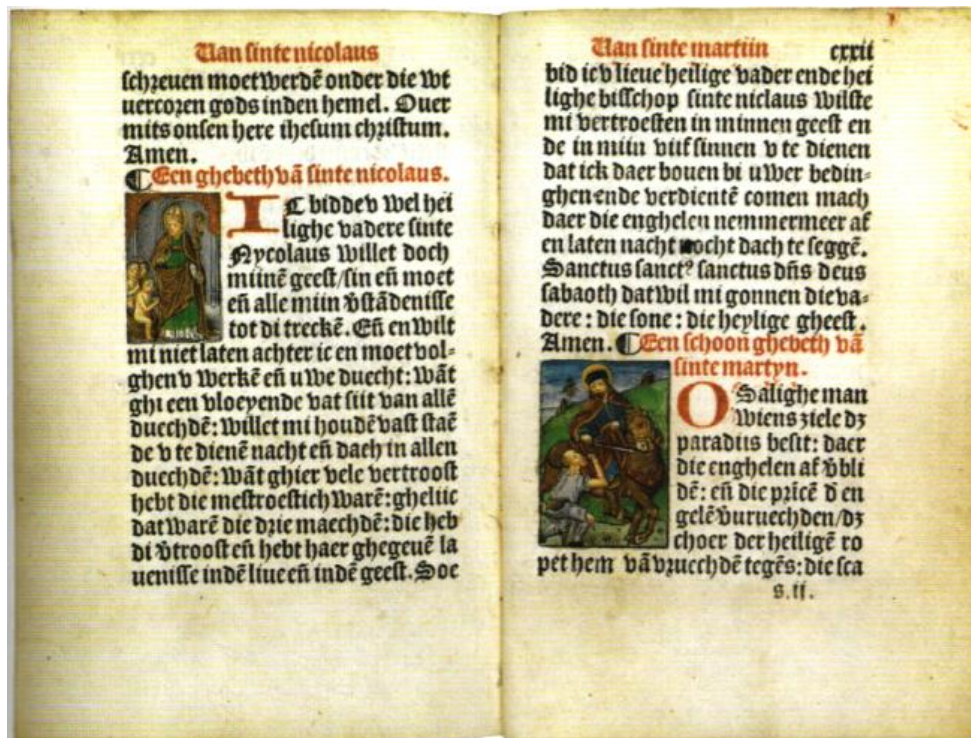 Uan sinte nicolaus
schreuen moet werdē onder die wt
uercoren gods inden hemel. Ouer
mits onsen here ihesum christum.
Amen.
⸿Een ghebeth vā sinte nicolaus.
IC bidde v wel hei
lighe vadere sinte
Nycolaus willet doch
miinē geest/sin eñ moet
eñ alle miin v̄stādenisse
tot di treckē. Eñ en wilt
mi niet laten achter ic en moet vol⸗
ghen v werkē eñ uwe duecht: wāt
ghi een vloeyende vat siit van allē
duechdē: willet mi houdē vast staē
de v te dienē nacht eñ dach in allen
duechdē: wāt ghi er vele vertroost
hebt die mestroestich warē: gheliic
dat warē die drie maechdē: die heb
di v̄troost eñ hebt haer ghegeuē la
uenisse indē liue eñ indē geest. Soe
Uan sinte martiin cxxii
bid ic v lieue heilige vader ende hei
lighe bisschop sinte niclaus wilste
mi vertroesten in minnen geest en
de in miin viif sinnen v te dienen
dat ick daer bouen bi uwer bedin⸗
ghen ende verdientē comen mach
daer die enghelen nemmermeer af
en laten nacht nocht dach te seggē.
Sanctus sanctꝰ sanctus dn̄s deus
sabaoth dat wil mi gonnen die va⸗
dere: die sone: die heylige gheest.
Amen. ⸿Een schoon ghebeth vā
sinte martyn.
O Salighe man
wiens ziele dꝫ
paradiis besit: daer
die enghelen af v̄bli
dē: eñ die pricē d̄ en
gelē v̄uruechden/dꝫ
choer der heiligē ro
pet hem vā vruechdē tegēs: die sca
s.ii.